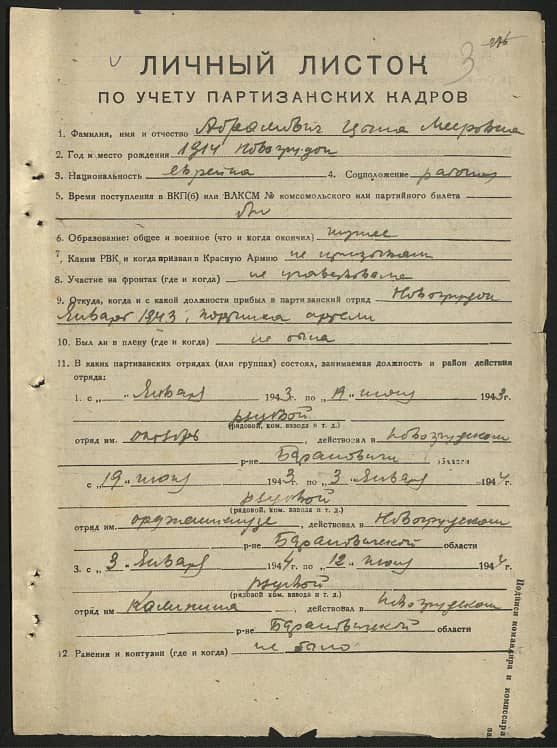 3 276
ЛИЧНЫЙ ЛИСТОК
ПО УЧЕТУ ПАРТИЗАНСКИХ КАДРОВ
1. Фамилия, имя и отчество Абрамович Мееровна
2. Год и место рождения 1914 Новогрудок
3. Национальность еврейка 4. Соцположение рабочий
5. Время поступления в ВКП(б) или ВЛКСМ № комсомольского или партийного билета
б/п
6. Образование: общее и военное (что и когда окончил) низшее
7. Каким РВК, и когда призван в Красную Армию не призывался
8. Участие на фронтах (где и когда) не участвовала
9. Откуда, когда и с какой должности прибыл в партизанский отряд Новогрудок
Январь 1943, артели
10. Был ли в плену (где и когда) не была
11. В каких партизанских отрядах (или группах) состоял, занимаемая должность и район действия
отряда:
1. с „ “ Января 1943 г. по „19“ июня 1943 г.
рядовой
(рядовой, ком. взвода и т. д.)
отряд им. октябрь, действовал в Новогрудском
р-не Барановичи области
с „19“ июня 1943 г. по „3“ Января 1944 г.
рядовой
(рядовой, ком. взвода и т. д.)
отряд им. орджоникидзе, действовал в Новогрудском
р-не Барановичской области
3. с „3“ Января 1944 г. по „12“ июня 1944 г.
рядовой
(рядовой, ком. взвода и т. д.)
отряд им. Калинина, действовал в Новогрудском
р-не Барановичской области
12. Ранения и контузии (где и когда) не было
Подписи командира и комиссара